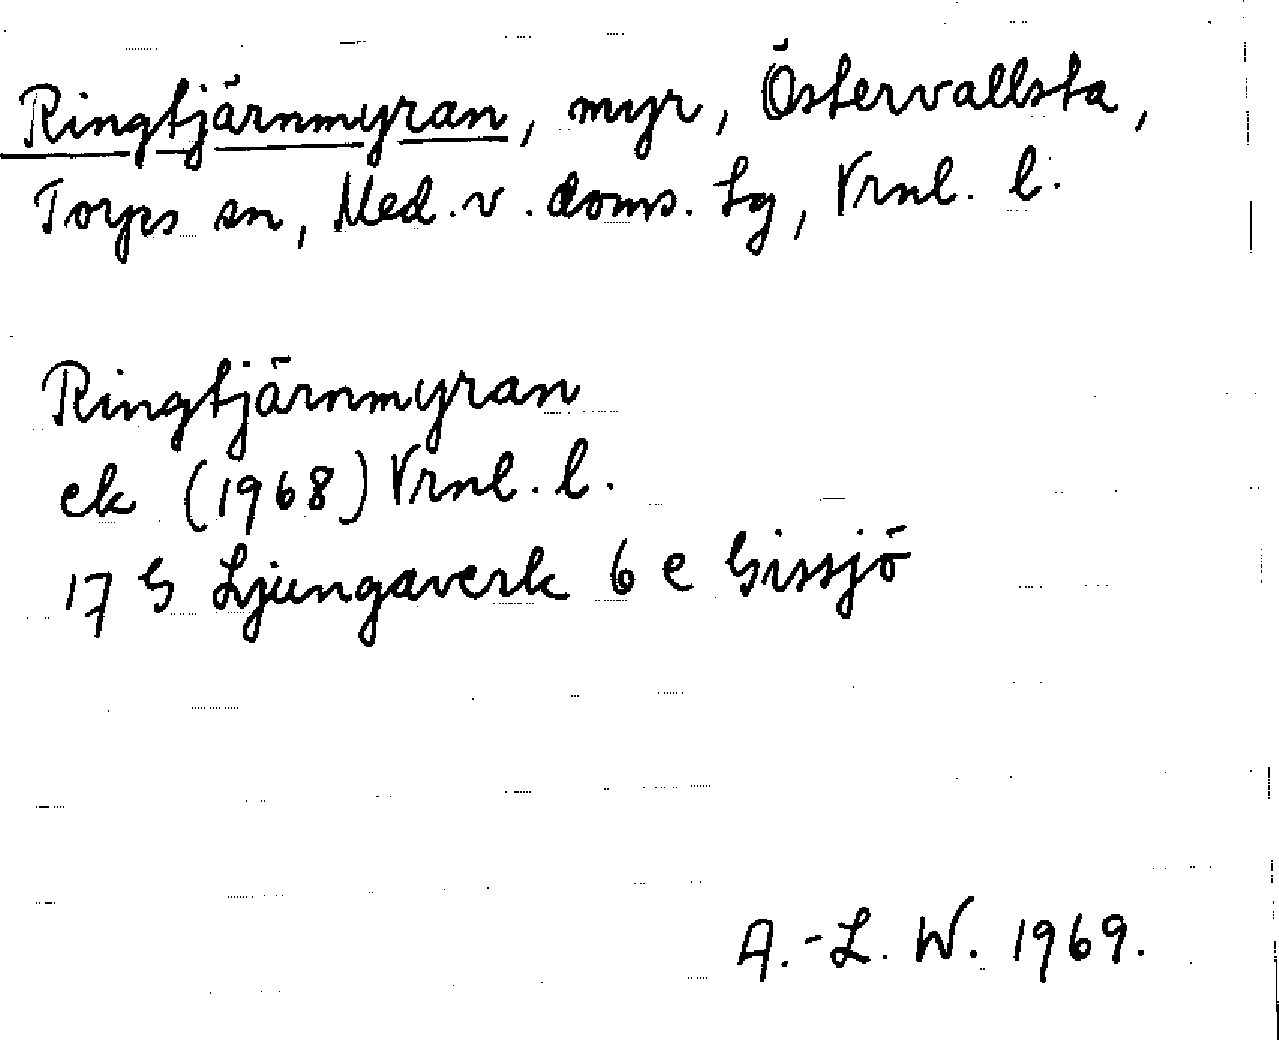 Ringtjärnmyran, myr, Östervallsta,
Torps sn, Med. v. doms. Lg, Vrnl. l.
Ringtjärnmyran
ek (1968) Vrnl. l.
17 G Ljungaverk 6 e Gissjö
A.-L. W. 1969.